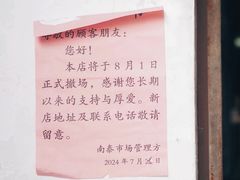 尊敬的顾客朋友：
您好！
本店将于8月1日
正式搬场，感谢您长期
以来的支持与厚爱。新
店地址及联系电话敬请
留意。
南泰市场管理方
2024年7月 日